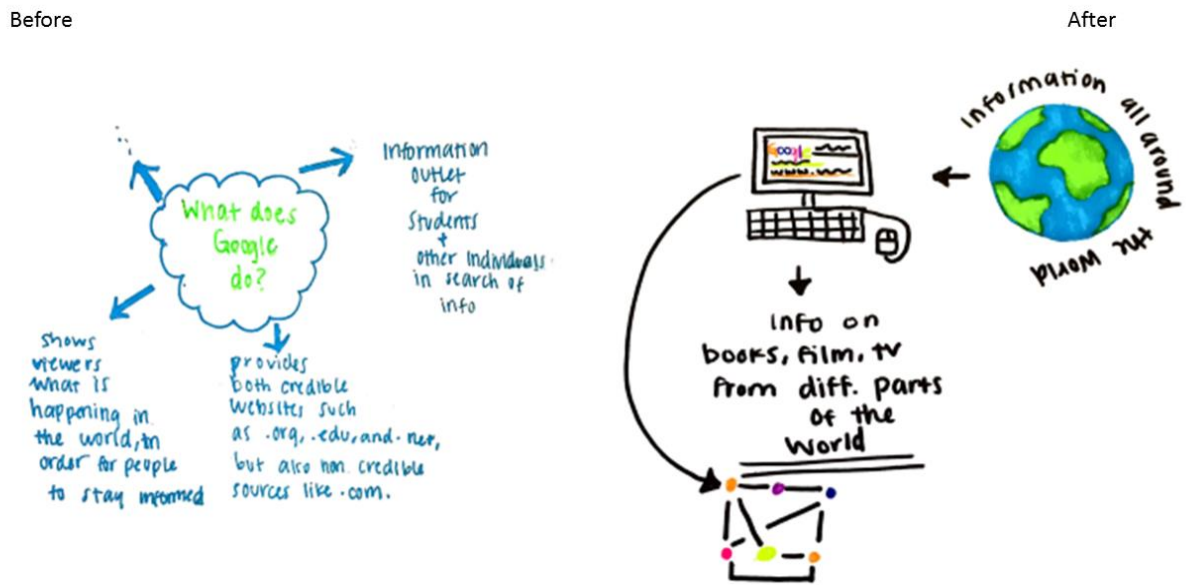 Before
After
What does
Google
do?
Information
outlet
for
Students
+
other Individuals
in search of
info
shows
viewers
what is
happening in
the world, in
order for people
to stay informed
provides
both credible
websites such
as .org, .edu, and .net,
but also non credible
sources like .com.
Information all around
the World
Google
www.
info on
books, film, tv
from diff. parts
of the
World